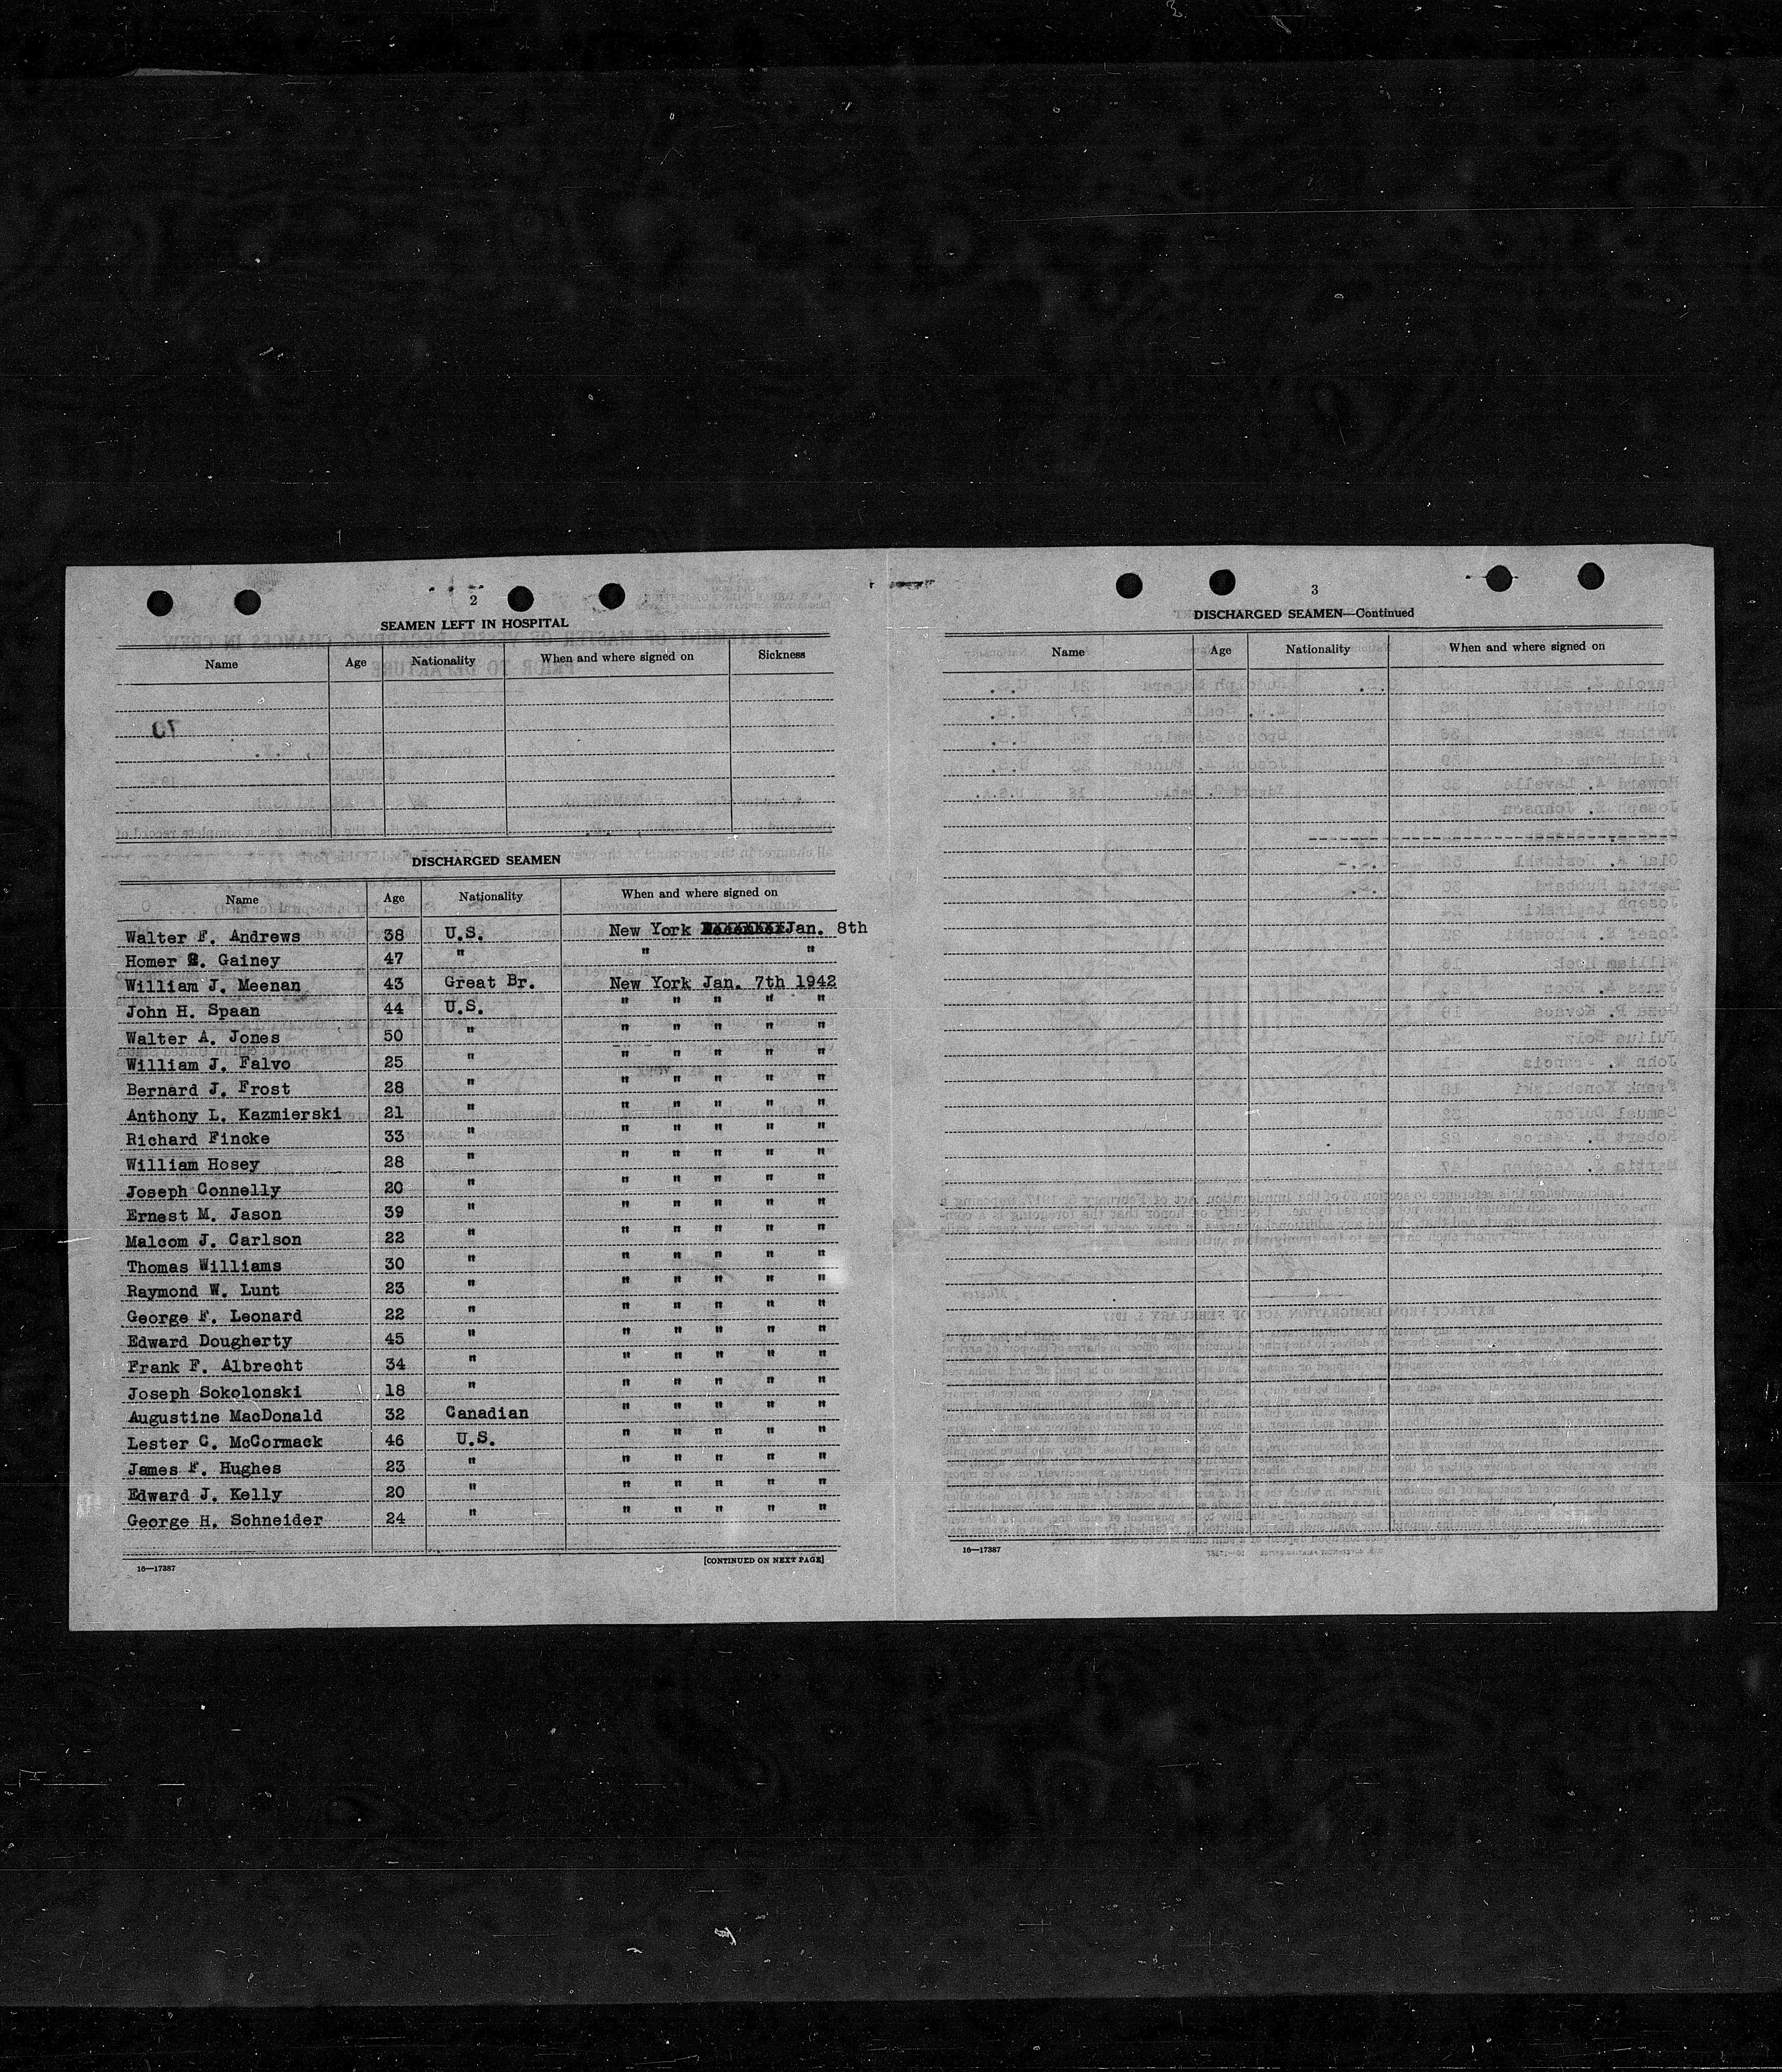 2
SEAMEN LEFT IN HOSPITAL
Name Age Nationality When and where signed on Sickness
DISCHARGED SEAMEN
Name Age Nationality When and where signed on
Walter F. Andrews 38 U.S. New York Jan. 8th
Homer Gainey 47 " " "
William J. Meenan 43 Great Br. New York Jan. 7th 1942
John H. Spaan 44 U.S. " " " " "
Walter A. Jones 50 " " " " " "
William J. Falvo 25 " " " " " "
Bernard J. Frost 28 " " " " " "
Anthony L. Kazmierski 21 " " " " " "
Richard Fincke 33 " " " " " "
William Hosey 28 " " " " " "
Joseph Connelly 20 " " " " " "
Ernest M. Jason 39 " " " " " "
Malcom J. Carlson 22 " " " " " "
Thomas Williams 30 " " " " " "
Raymond W. Lunt 23 " " " " " "
George F. Leonard 22 " " " " " "
Edward Dougherty 45 " " " " " "
Frank F. Albrecht 34 " " " " " "
Joseph Sokolonski 18 " " " " " "
Augustine MacDonald 32 Canadian " " " " "
Lester C. McCormack 46 U.S. " " " " "
James F. Hughes 23 " " " " " "
Edward J. Kelly 20 " " " " " "
George H. Schneider 24 " " " " " "
16—17387 [CONTINUED ON NEXT PAGE]
3
DISCHARGED SEAMEN—Continued
Name Age Nationality When and where signed on
16—17387